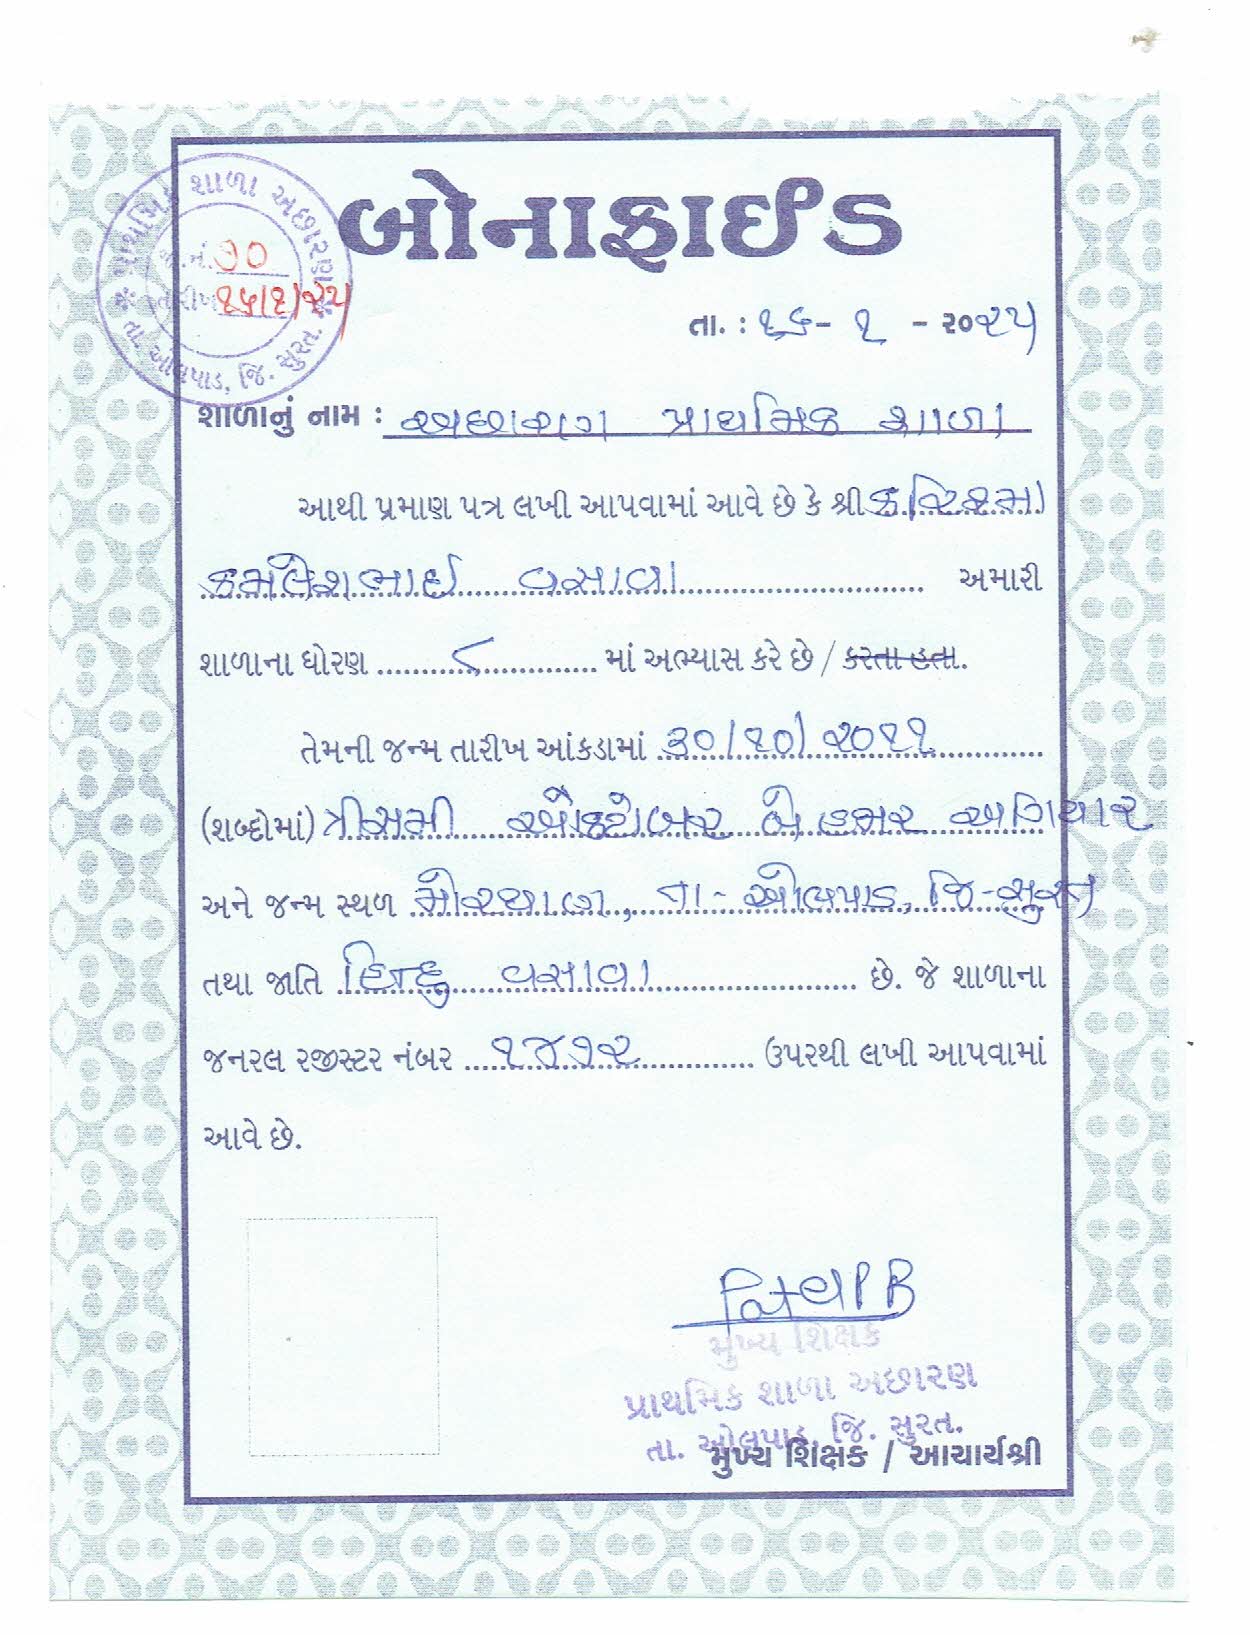 બોનાફાઈડ
પ્રાથમિક શાળા અછારણ
જા.નં. ૭૦
તારીખ ૧૬/૧/૨૫
તા. ઓલપાડ, જિ. સુરત.
તા. : ૧૬- ૧ - ૨૦૨૫
શાળાનું નામ : અછારણ પ્રાથમિક શાળા
આથી પ્રમાણ પત્ર લખી આપવામાં આવે છે કે શ્રી કરિશ્મા
કમલેશભાઈ વસાવા અમારી
શાળાના ધોરણ ૮ માં અભ્યાસ કરે છે / કરતા હતા.
તેમની જન્મ તારીખ આંકડામાં ૩૦/૧૦/૨૦૧૧
(શબ્દોમાં) ત્રીસમી ઓક્ટોબર બે હજાર અગિયાર
અને જન્મ સ્થળ મોરથાણ, તા- ઓલપાડ, જિ-સુરત
તથા જાતિ હિન્દુ વસાવા છે. જે શાળાના
જનરલ રજીસ્ટર નંબર ૧૪૭૨ ઉપરથી લખી આપવામાં
આવે છે.
મુખ્ય શિક્ષક
પ્રાથમિક શાળા અછારણ
તા. ઓલપાડ, જિ. સુરત.
મુખ્ય શિક્ષક / આચાર્યશ્રી